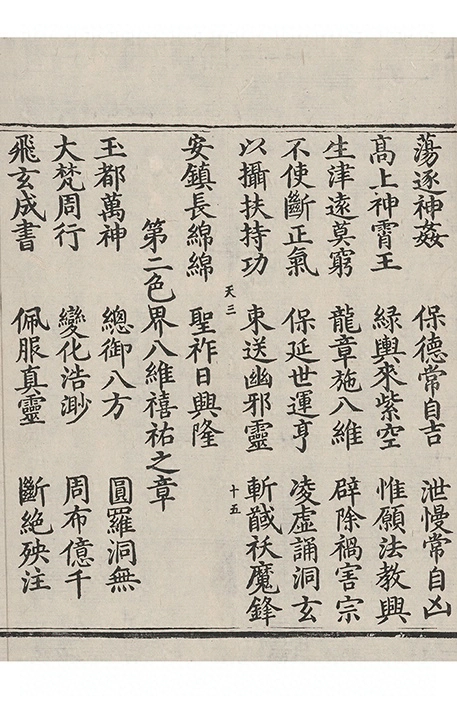 蕩逐神姦　保德常自吉　泄慢常自凶
高上神霄王　綠輿來紫空　惟願法教興
生津遠莫窮　龍章施八維　辟除禍害宗
不使斷正氣　保延世運亨　凌虛誦洞玄
以攝扶持功　束送幽邪靈　斬馘袄魔鋒
天三　十五
安鎮長綿綿　聖祚日興隆
第二色界八維禧祐之章
玉都萬神　總御八方　圓羅洞無
大梵周行　變化浩渺　周布億千
飛玄成書　佩服真靈　斷絕殃注